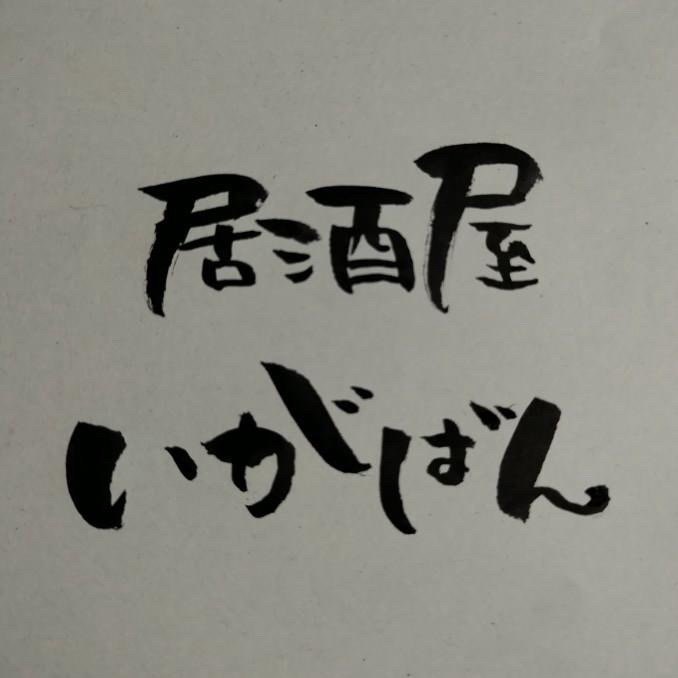 居酒屋
いがばん